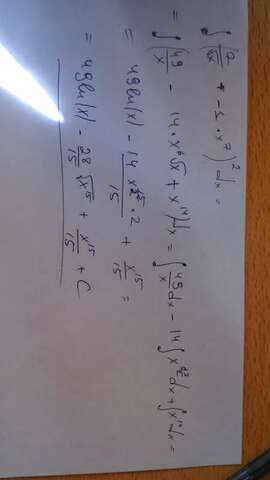 ∫(7/√x + -1·x⁷)² dx =
= ∫(49/x - 14·x⁶√x + x¹⁴)dx = ∫49/x dx - 14∫x^(6½)dx + ∫x¹⁴dx =
= 49 ln(x) - 14 x^(7½)·2/15 + x¹⁵/15 =
= 49 ln(x) - 28/15 √x¹⁵ + x¹⁵/15 + C